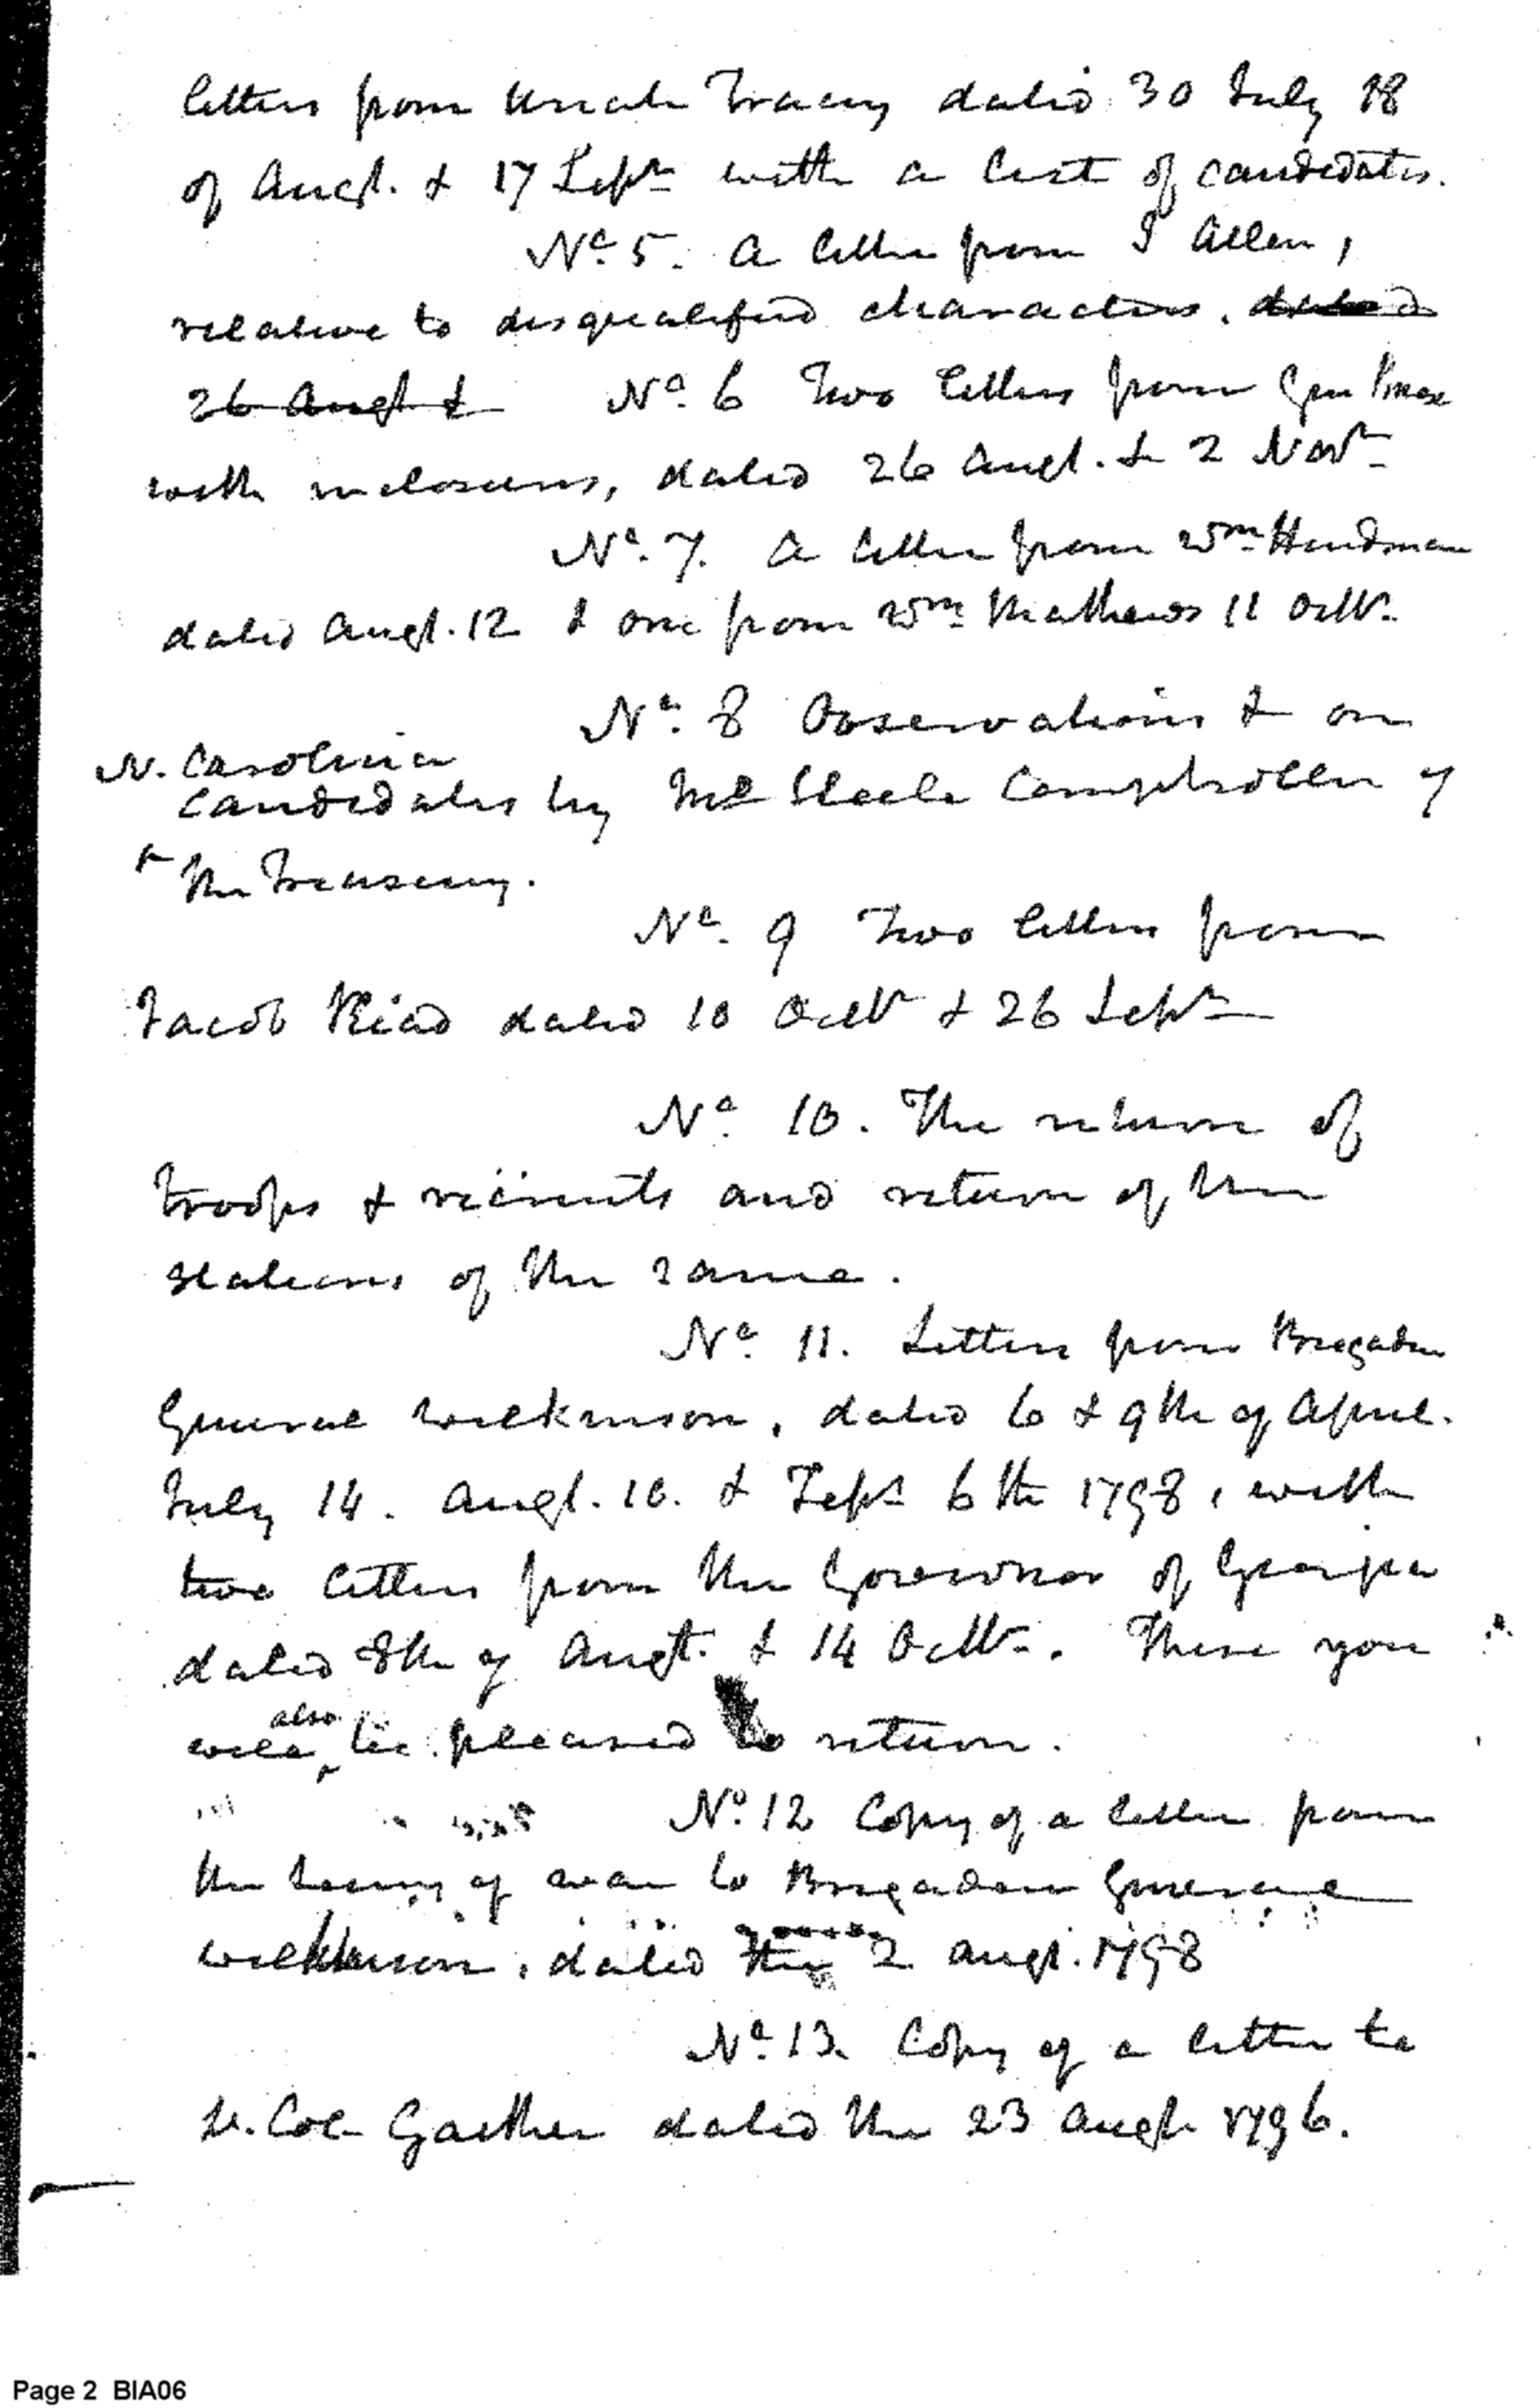 letters from Uriah Tracey dated 30 July 18
of Augt. & 17 Sepr with a list of candidates.
No. 5. A letter from I Allen,
relative to disqualified characters. dated
26 Augt & No. 6 Two letters from Gen
with inclosures, dated 26 Augt. & 2 Novr
No. 7. A letter from Wm Hindman
dated Augt. 12 & one from Wm Mathews 11 Octr.
No. 8 Observations & on
N. Carolina
candidates by Mr Steele Comptroller of
the Treasury.
No. 9 Two letters from
Jacob Read dated 10 Octr & 26 Sepr
No. 10. The return of
troops & recruits and return of the
stations of the same.
No. 11. Letters from Brigadier
General Wilkinson, dated 6 & 9th of April.
July 14. Augt. 10. & Sepr 6th 1798, with
two letters from the Governor of Georgia
dated 8th of Augt. & 14 Octr. These you
also
will be pleased to return.
No. 12 Copy of a letter from
the Secry of war to Brigadier General
Wilkinson, dated the 2 Augt. 1798
No. 13. Copy of a letter to
Lt. Col Gaither dated the 23 Augt 1796.
Page 2 BIA06